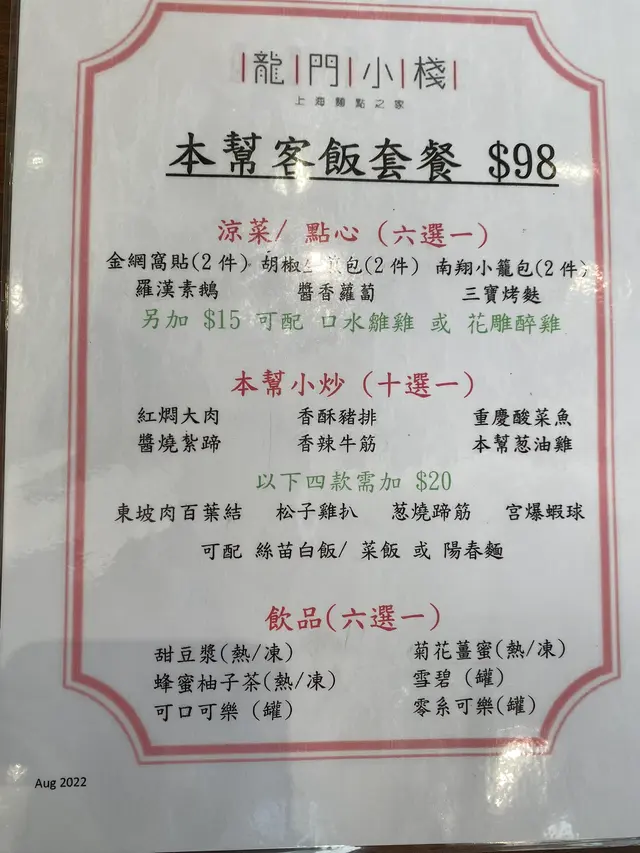 龍門小棧
上海麵點之家
本幫客飯套餐 $98
涼菜/ 點心 (六選一)
金網窩貼(2 件) 胡椒 煎包(2 件) 南翔小籠包(2 件)
羅漢素鵝 醬香蘿蔔 三寶烤麩
另加 $15 可配 口水雞雞 或 花雕醉雞
本幫小炒 (十選一)
紅燜大肉 香酥豬排 重慶酸菜魚
醬燒紮蹄 香辣牛筋 本幫葱油雞
以下四款需加 $20
東坡肉百葉結 松子雞扒 葱燒蹄筋 宮爆蝦球
可配 絲苗白飯/ 菜飯 或 陽春麵
飲品(六選一)
甜豆漿(熱/凍) 菊花薑蜜(熱/凍)
蜂蜜柚子茶(熱/凍) 雪碧 (罐)
可口可樂 (罐) 零系可樂(罐)
Aug 2022